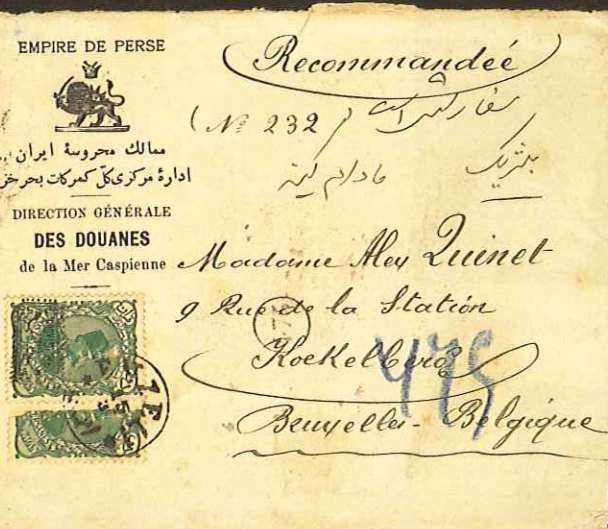 EMPIRE DE PERSE
ممالك محروسهٔ ایران
ادارهٔ مرکزی کل گمرکات بحر خزر
DIRECTION GÉNÉRALE
DES DOUANES
de la Mer Caspienne
Recommandée
(Nº 232)
سفارشی است
بلژیک
مادام کینه
Madame Alex Quinet
9 Rue de la Station
Koekelberg
Bruxelles - Belgique
475